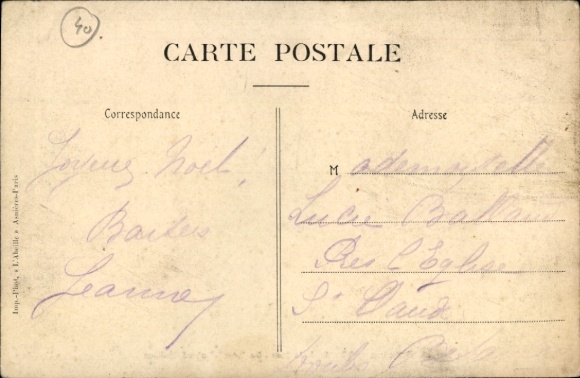 40.
CARTE POSTALE
Correspondance
Adresse
Joyeux Noël!
Baisers
Jeanne
Mademoiselle
Lucie
Près l'Église
St Claude
Imp.-Phot. « L'Abeille » Asnières-Paris